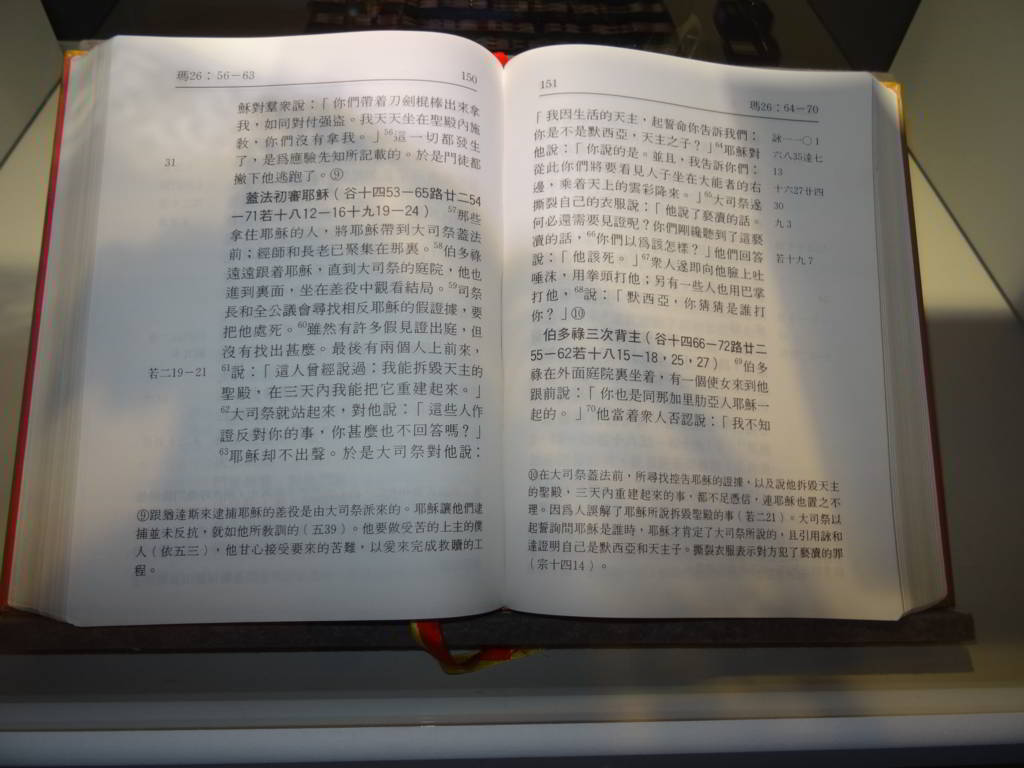 瑪26：56－63
150
穌對羣衆說：「你們帶着刀劍棍棒出來拿
我，如同對付强盜。我天天坐在聖殿內施
教，你們沒有拿我。」56這一切都發生
31
了，是爲應驗先知所記載的。於是門徒都
撇下他逃跑了。⑨
蓋法初審耶穌（谷十四53－65路廿二54
－71若十八12－16十九19－24） 57那些
拿住耶穌的人，將耶穌帶到大司祭蓋法
前；經師和長老已聚集在那裏。58伯多祿
遠遠跟着耶穌，直到大司祭的庭院，他也
進到裏面，坐在差役中觀看結局。59司祭
長和全公議會尋找相反耶穌的假證據，要
把他處死。60雖然有許多假見證出庭，但
沒有找出甚麼。最後有兩個人上前來，
若二19－21
61說：「這人曾經說過：我能拆毀天主的
聖殿，在三天內我能把它重建起來。」
62大司祭就站起來，對他說：「這些人作
證反對你的事，你甚麼也不回答嗎？」
63耶穌却不出聲。於是大司祭對他說：
⑨跟猶達斯來逮捕耶穌的差役是由大司祭派來的。耶穌讓他們逮
捕並未反抗，就如他所教訓的（五39）。他要做受苦的上主的僕
人（依五三），他甘心接受要來的苦難，以愛來完成救贖的工
程。
151
瑪26：64－70
「我因生活的天主，起誓命你告訴我們：
你是不是默西亞，天主之子？」64耶穌對
詠一一〇1
他說：「你說的是。並且，我告訴你們：
六八35達七
從此你們將要看見人子坐在大能者的右
13
邊，乘着天上的雲彩降來。」65大司祭遂
十六27廿四
撕裂自己的衣服說：「他說了褻瀆的話。
30
何必還需要見證呢？你們剛纔聽到了這褻
九3
瀆的話，66你們以爲該怎樣？」他們回答
說：「他該死。」67衆人遂即向他臉上吐
若十九7
唾沫，用拳頭打他；另有一些人也用巴掌
打他，68說：「默西亞，你猜猜是誰打
你？」⑩
伯多祿三次背主（谷十四66－72路廿二
55－62若十八15－18，25，27） 69伯多
祿在外面庭院裏坐着，有一個使女來到他
跟前說：「你也是同那加里肋亞人耶穌一
起的。」70他當着衆人否認說：「我不知
⑩在大司祭蓋法前，所尋找控告耶穌的證據，以及說他拆毀天主
的聖殿，三天內重建起來的事，都不足憑信，連耶穌也置之不
理。因爲人誤解了耶穌所說拆毀聖殿的事（若二21）。大司祭以
起誓詢問耶穌是誰時，耶穌才肯定了大司祭所說的，且引用詠和
達證明自己是默西亞和天主子。撕裂衣服表示對方犯了褻瀆的罪
（宗十四14）。